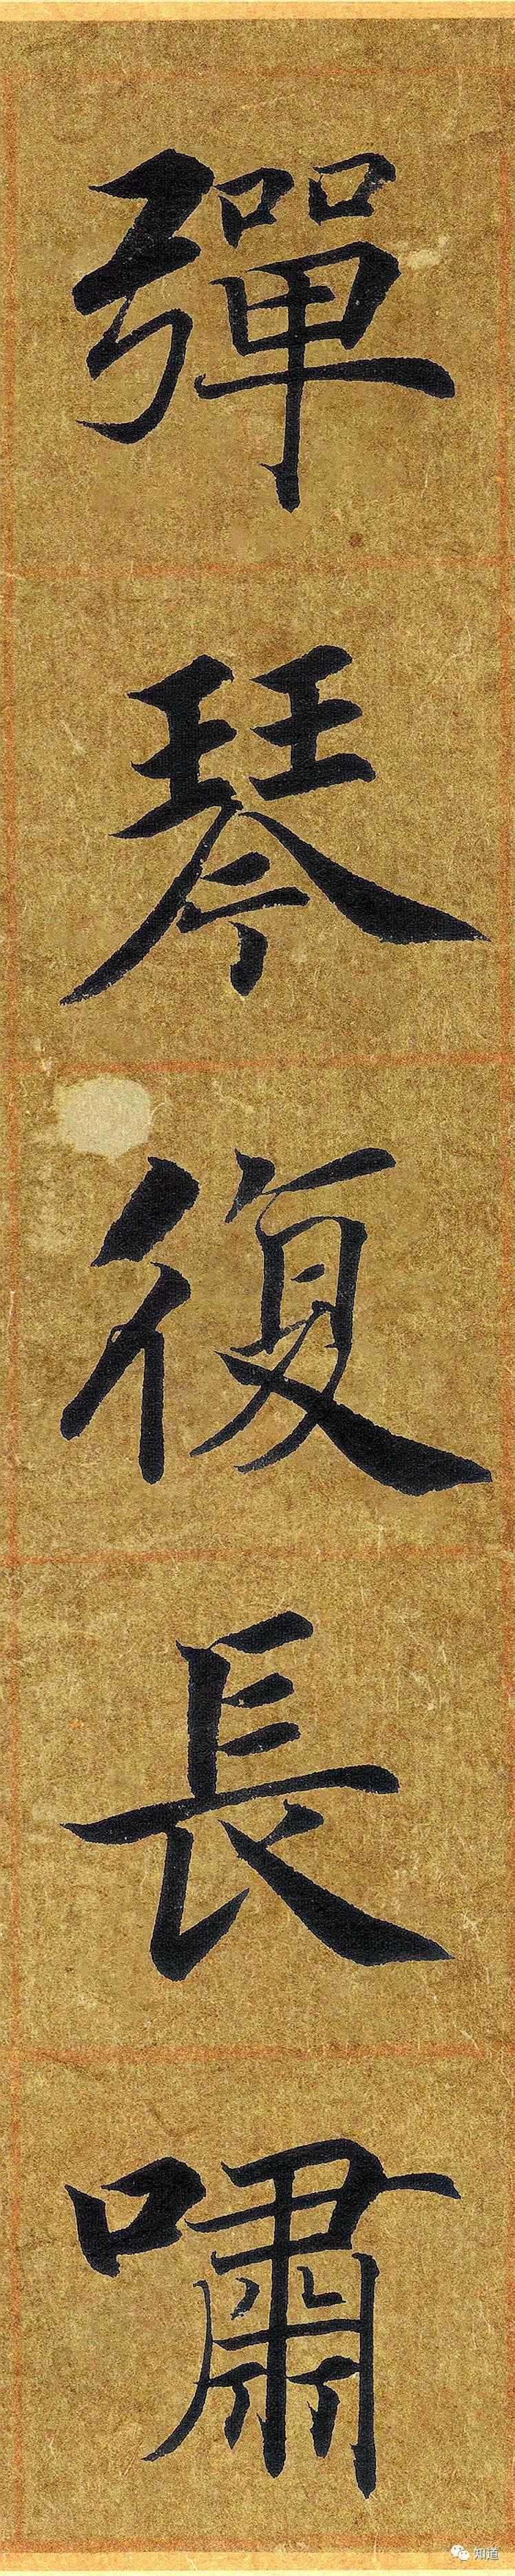 彈琴復長嘯
知道